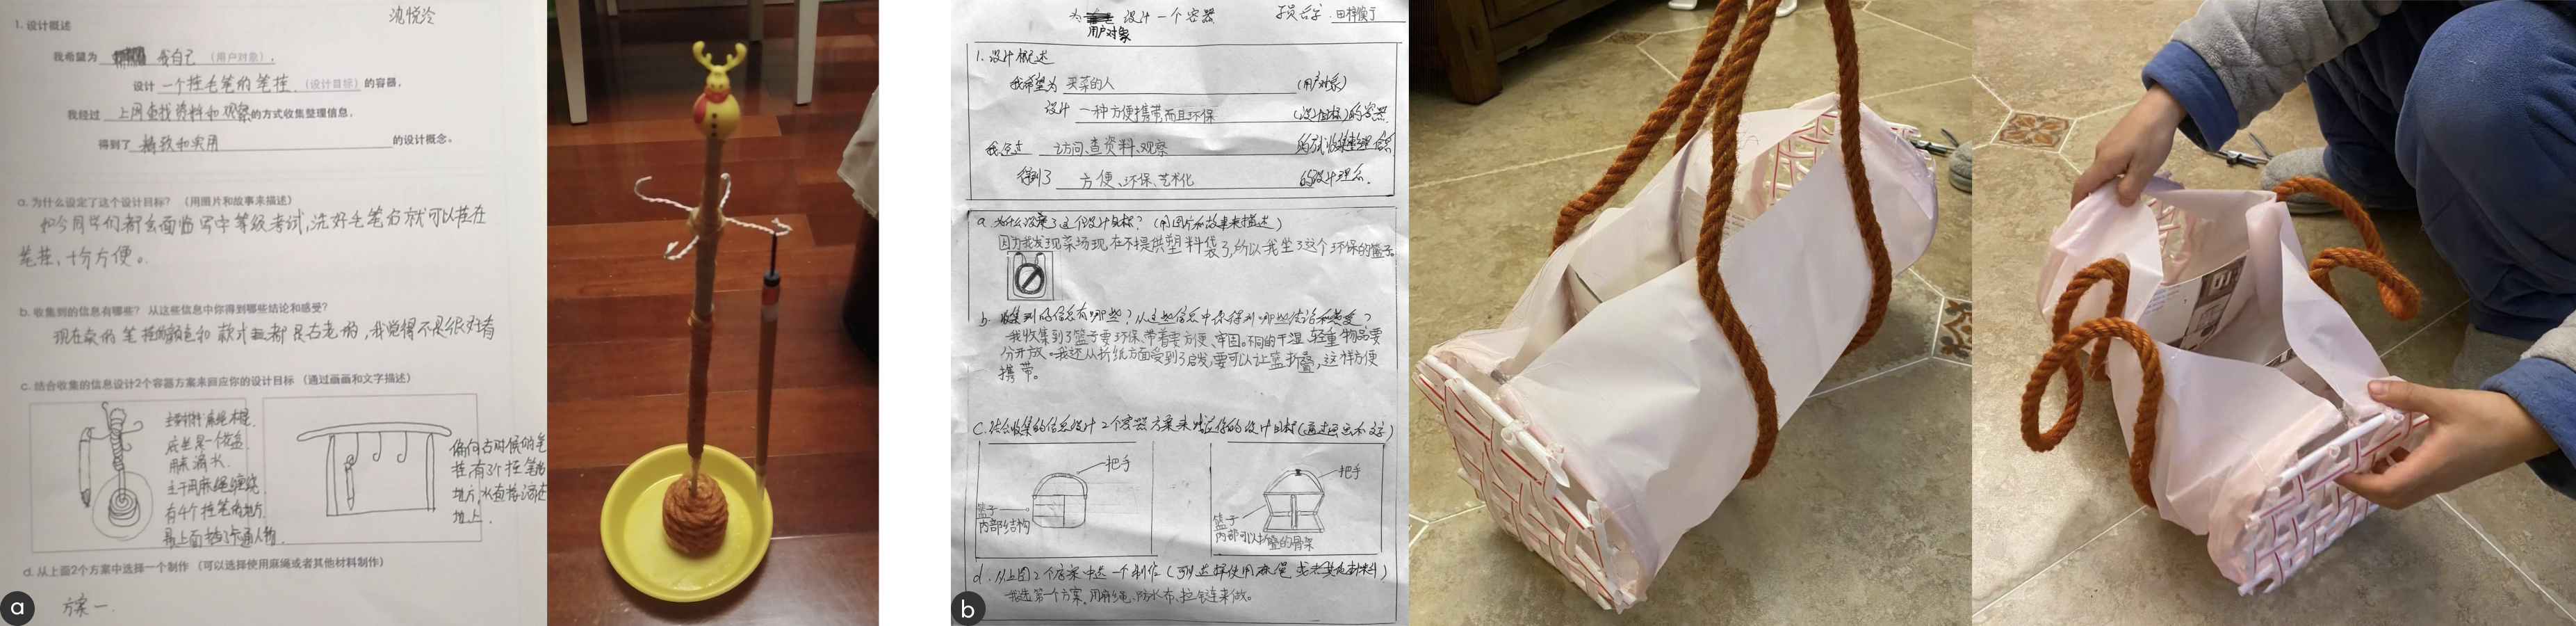 沈悦泠
1. 设计概述
我希望为 我自己 (用户对象),
设计 一个挂毛笔的笔挂 (设计目标) 的容器,
我经过 上网查找资料和观察的方式收集整理信息,
得到了 精致和实用 的设计概念。
a. 为什么设定了这个设计目标? (用图片和故事来描述)
如今同学们都会面临写字等级考试,洗好毛笔后就可以挂在
笔挂,十分方便。
b. 收集到的信息有哪些? 从这些信息中你得到哪些结论和感受?
现在卖的笔挂颜色和款式都是古老的,我觉得不是很好看
c. 结合收集的信息设计2个容器方案来回应你的设计目标 (通过画画和文字描述)
主要材料麻绳木棍.
底坐是一个花盆.
用来滴水.
主干用麻绳缠绕.
有4个挂笔的地方.
最上面挡了卡通人物.
偏向古时候的笔
挂有3个挂笔的
地方,水直接滴在
地上.
d. 从上面2个方案中选择一个制作 (可以选择使用麻绳或者其他材料制作)
方案一.
a
为 设计一个容器
用户对象
1. 设计概述
我希望为 买菜的人 (用户对象)
设计 一种方便携带而且环保 (设计目标)的容器.
我经过 访问、查资料、观察 的方式收集整理信息
得到了 方便、环保、艺术化 的设计理念.
a. 为什么设定了这个设计目标? (用图片和故事来描述)
因为我发现菜场现在不提供塑料袋了,所以我坐了这个环保的篮子.
b. 收集到的信息有哪些? 从这些信息中你得到哪些结论和感受?
我收集到了篮子要环保,带着要方便、牢固。不同的干湿、轻重物品要
分开放。我还从折纸方面受到了启发,要可以让篮折叠,这样方便
携带。
c. 结合收集的信息设计2个容器方案来回应你的设计目标(通过画画和文字)
把手
篮子
内部结构
把手
篮子
内部可以折叠的骨架
d. 从上图2个方案中选一个制作 (可以选择使用麻绳或者其他材料)
我选第一个方案,用麻绳、防水布、拉链来做。
b